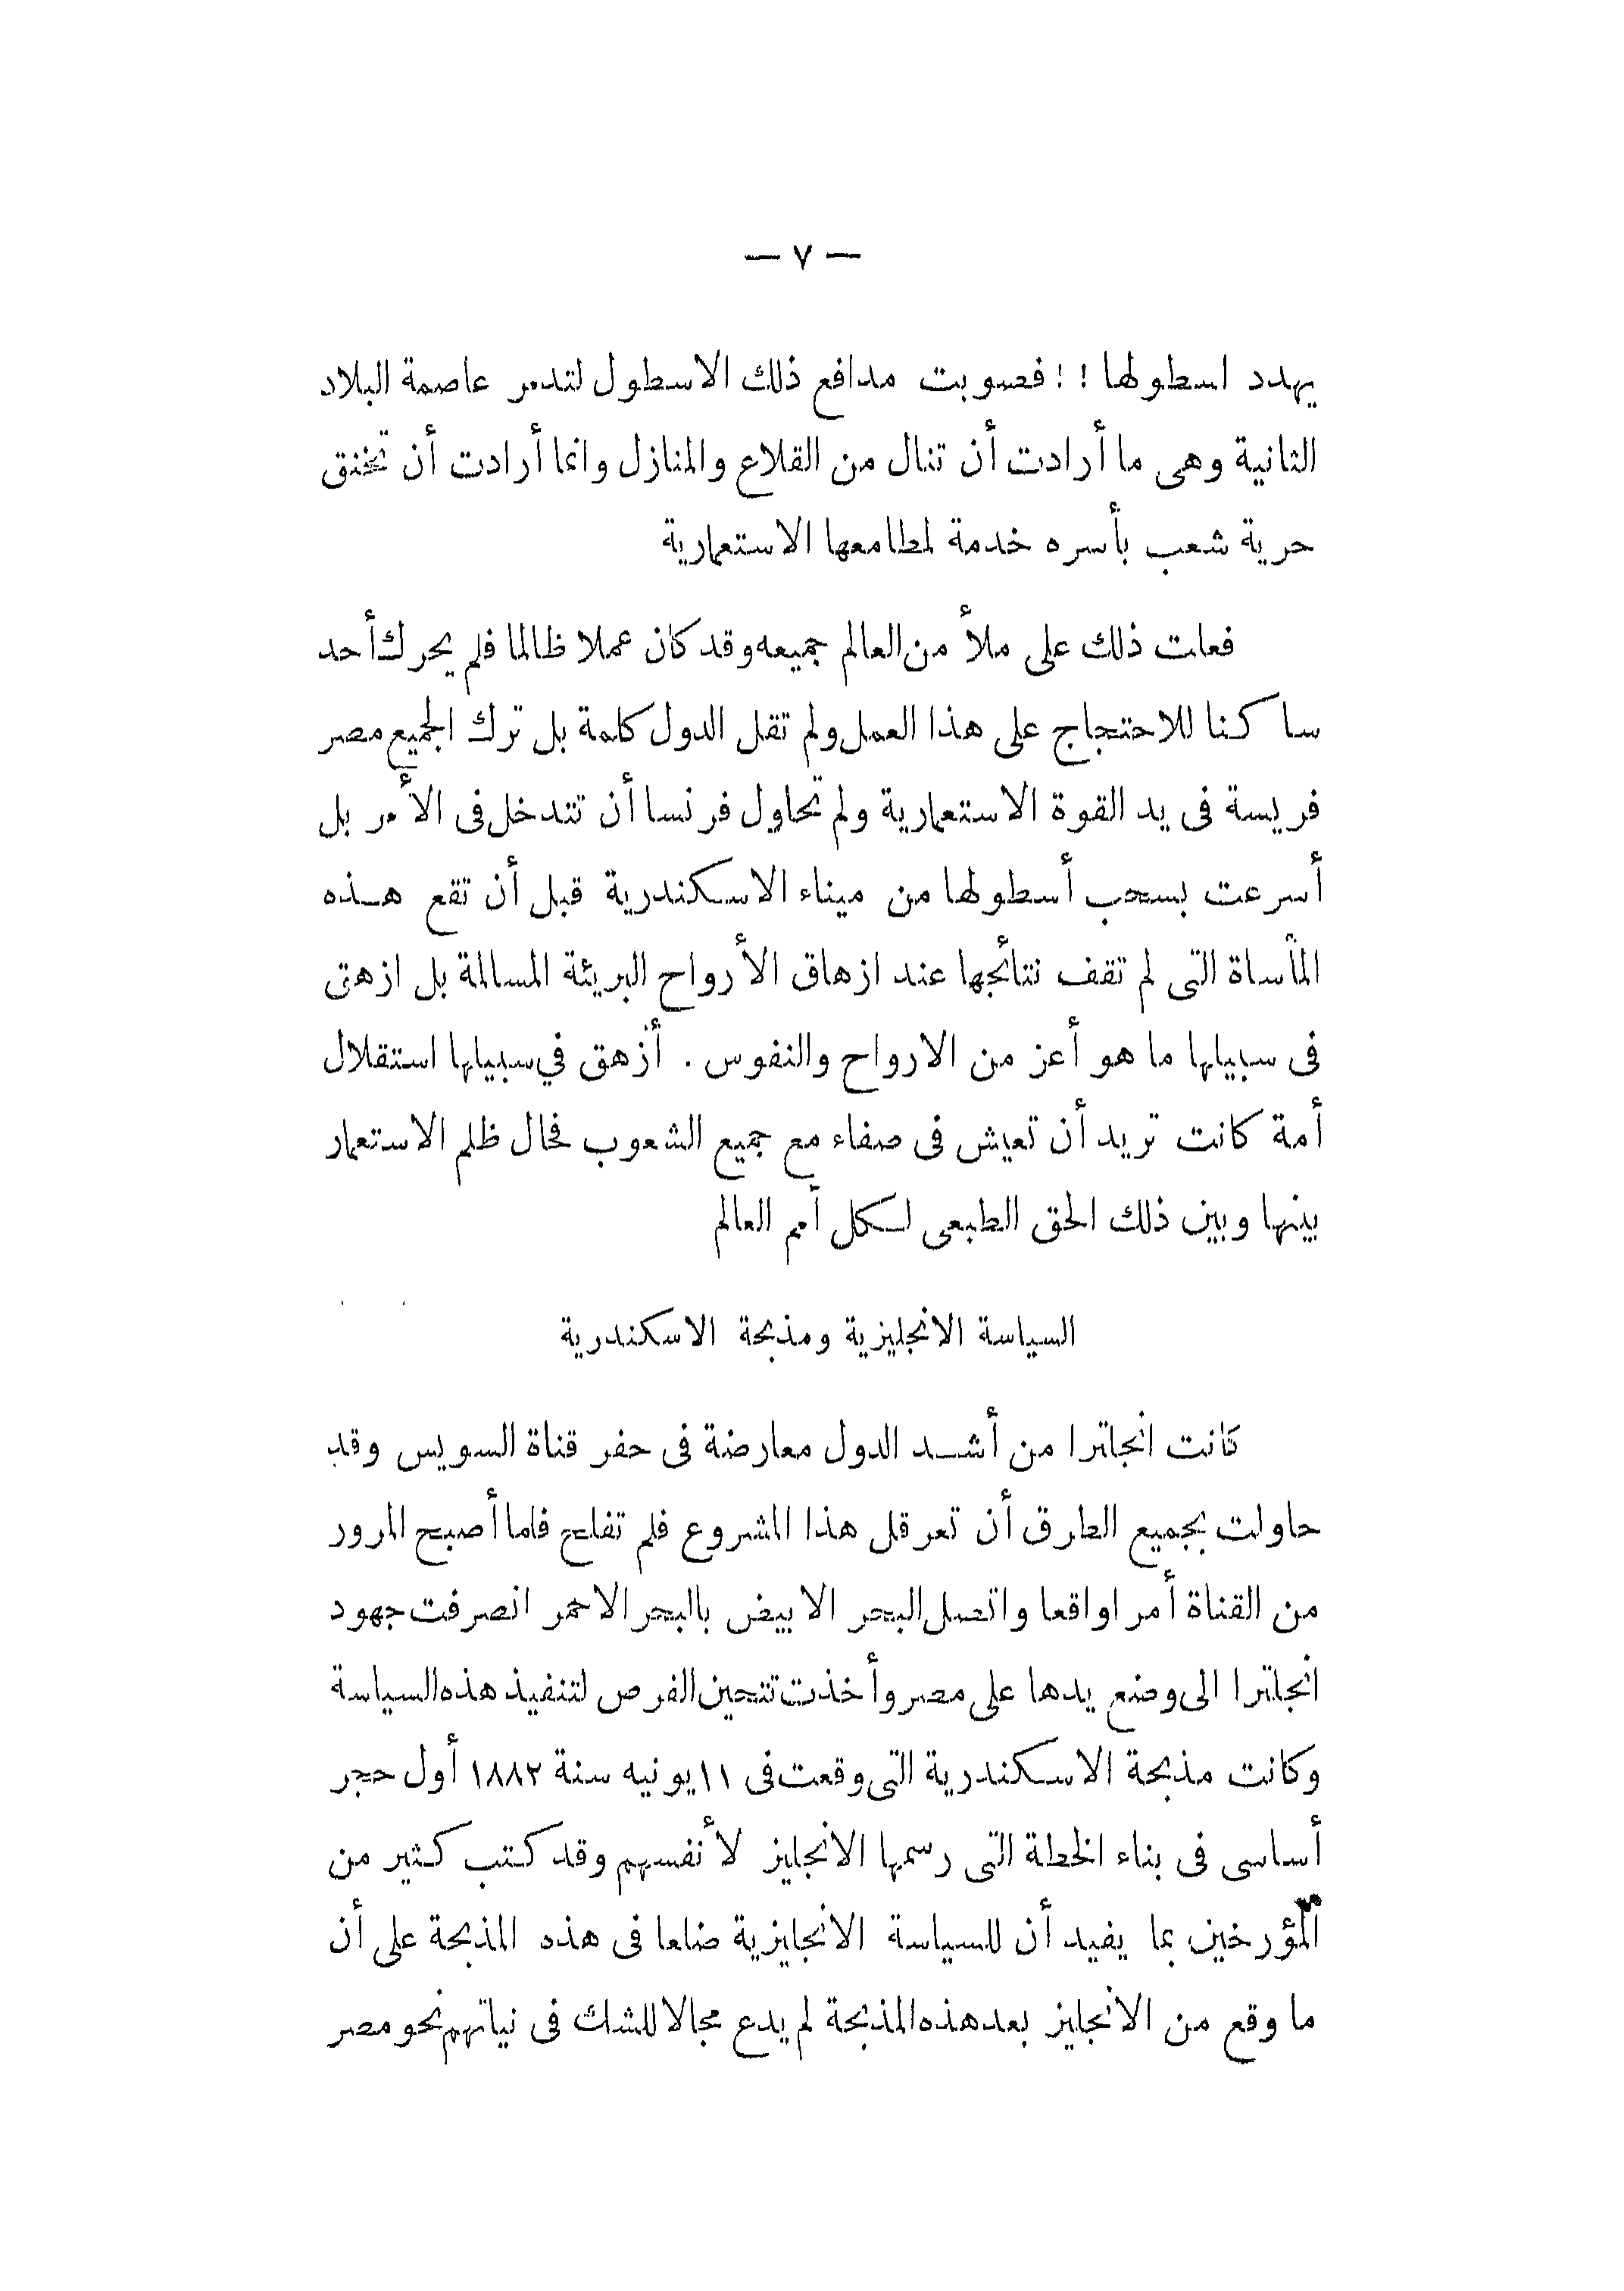 — ٧ —
يهدد اسطولها ! ! فصوبت مدافع ذلك الاسطول لتدمر عاصمة البلاد
الثانية وهى ما أرادت أن تنال من القلاع والمنازل وانما أرادت أن تخنق
حرية شعب بأسره خدمة لمطامعها الاستعمارية
فعلت ذلك على ملأ من العالم جميعه وقد كان عملا ظالما فلم يحرك أحد
ساكنا للاحتجاج على هذا العمل ولم تقل الدول كلمة بل ترك الجميع مصر
فريسة فى يد القوة الاستعمارية ولم تحاول فرنسا أن تتدخل فى الأمر بل
أسرعت بسحب أسطولها من ميناء الاسكندرية قبل أن تقع هذه
المأساة التى لم تقف نتائجها عند ازهاق الأرواح البريئة المسالمة بل ازهق
فى سبيلها ما هو أعز من الارواح والنفوس . أزهق في سبيلها استقلال
أمة كانت تريد أن تعيش فى صفاء مع جميع الشعوب فحال ظلم الاستعمار
بينها وبين ذلك الحق الطبعى لكل أمم العالم
السياسة الانجليزية ومذبحة الاسكندرية
كانت انجلترا من أشد الدول معارضة فى حفر قناة السويس وقد
حاولت بجميع الطرق أن تعرقل هذا المشروع فلم تفلح فلما أصبح المرور
من القناة أمرا واقعا واتصل البحر الابيض بالبحر الاحمر انصرفت جهود
انجلترا الى وضع يدها على مصر وأخذت تتحين الفرص لتنفيذ هذه السياسة
وكانت مذبحة الاسكندرية التى وقعت فى ١١ يونيه سنة ١٨٨٢ أول حجر
أساسى فى بناء الخطة التى رسمها الانجليز لأنفسهم وقد كتب كثير من
المؤرخين بما يفيد أن للسياسة الانجليزية ضلعا فى هذه المذبحة على أن
ما وقع من الانجليز بعد هذه المذبحة لم يدع مجالا للشك فى نياتهم نحو مصر